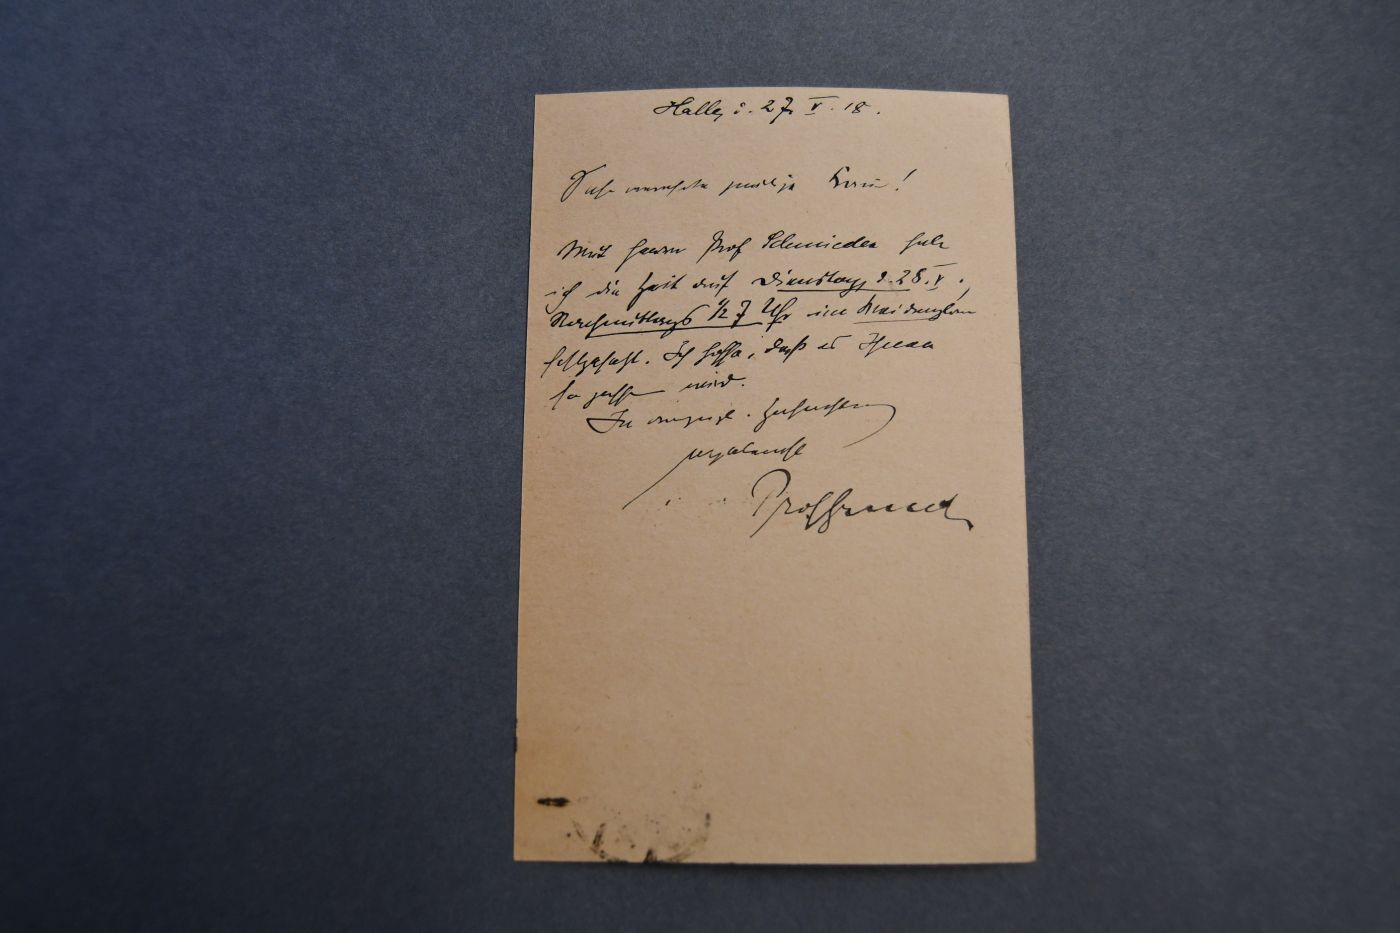 Halle, d. 27. V. 18.
Sehr verehrte gnädige Frau!
Mit Herrn Prof Schmieden habe
ich die Zeit auf Dienstag, d. 28. V.,
Nachmittags 1/2 7 Uhr im
festgesetzt. Ich hoffe, daß es Ihnen
so passen wird.
In
ergebenst